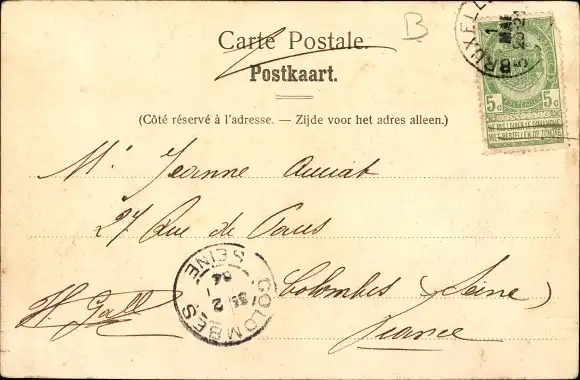 B
Carte Postale.
Postkaart.
(Côté réservé à l'adresse. — Zijde voor het adres alleen.)
BRUXELLES
1 MAR
5c 5c
NE PAS LIVRER LE DIMANCHE
NIET BESTELLEN OP ZONDAG
Jeanne
27 Rue de Paris
Colombes (Seine)
France
H. Gall
COLOMBES
SEINE
2
04